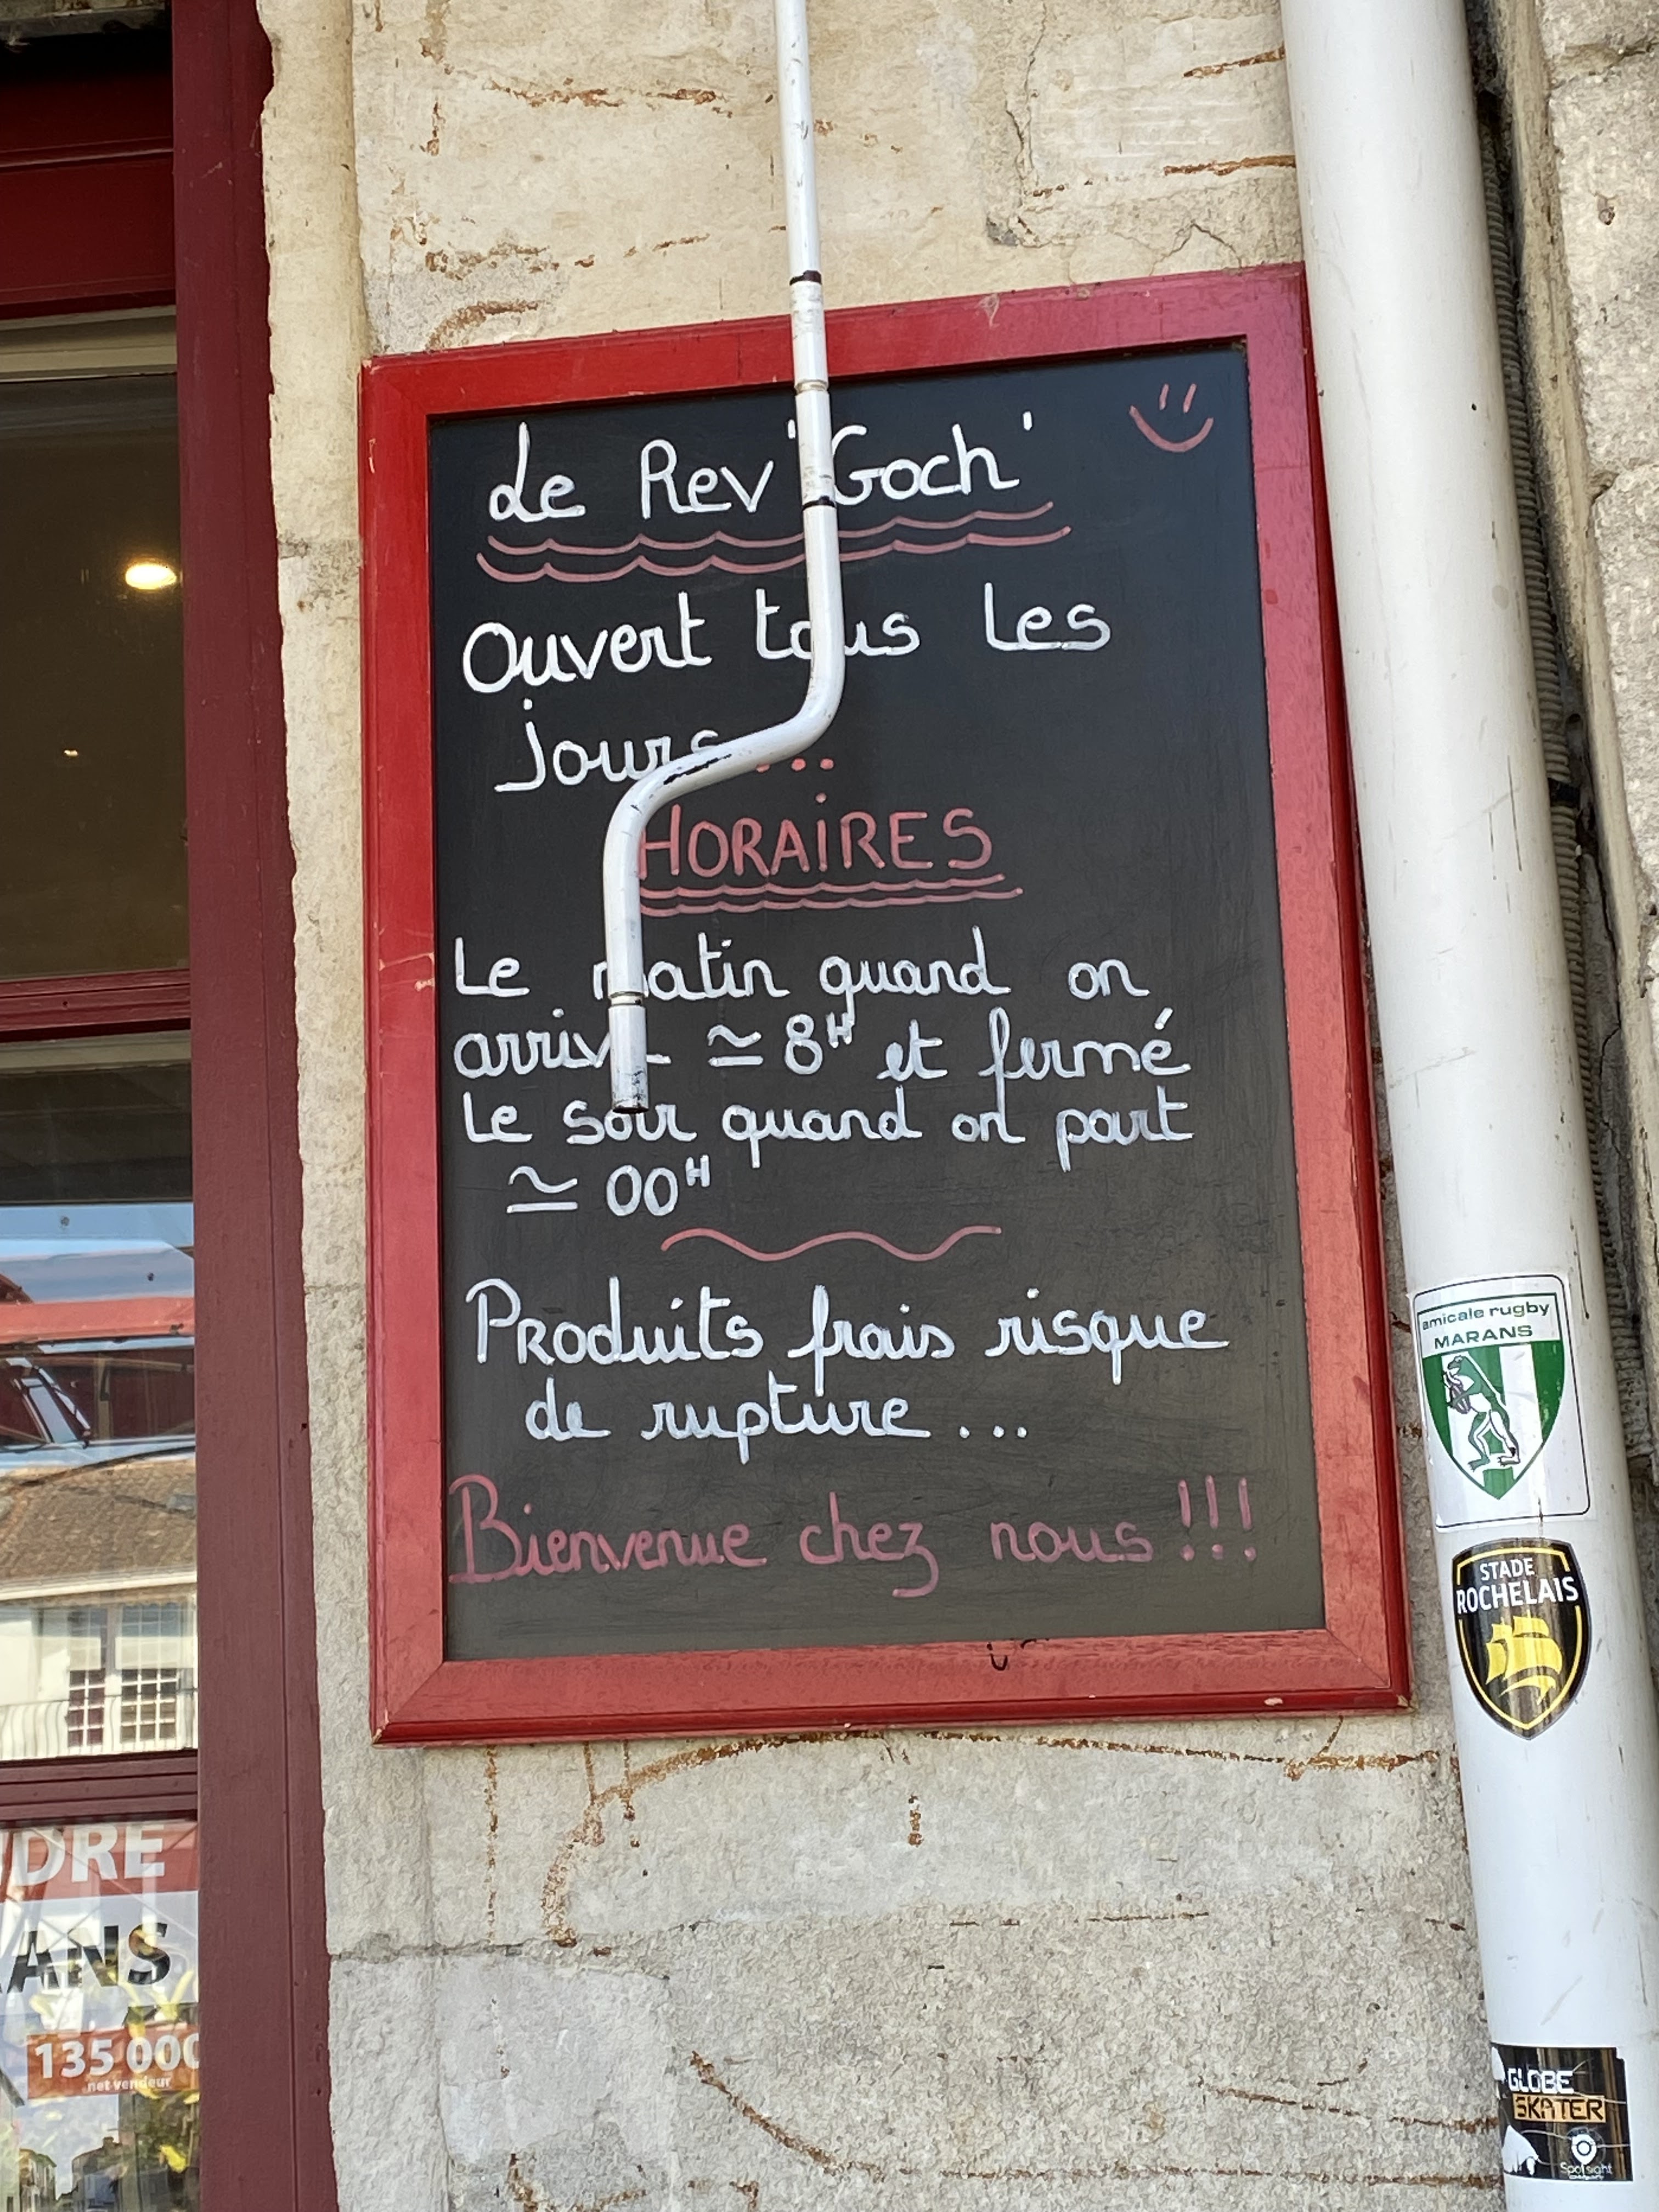 Le Rev 'Goch'
Ouvert tous les
jours ...
HORAIRES
Le matin quand on
arrive ≃ 8H et fermé
Le soir quand on part
≃ 00H
Produits frais risque
de rupture ...
Bienvenue chez nous !!!
amicale rugby
MARANS
STADE
ROCHELAIS
GLOBE
SKATER
Spotsight
DRE
ANS
135 000
net vendeur